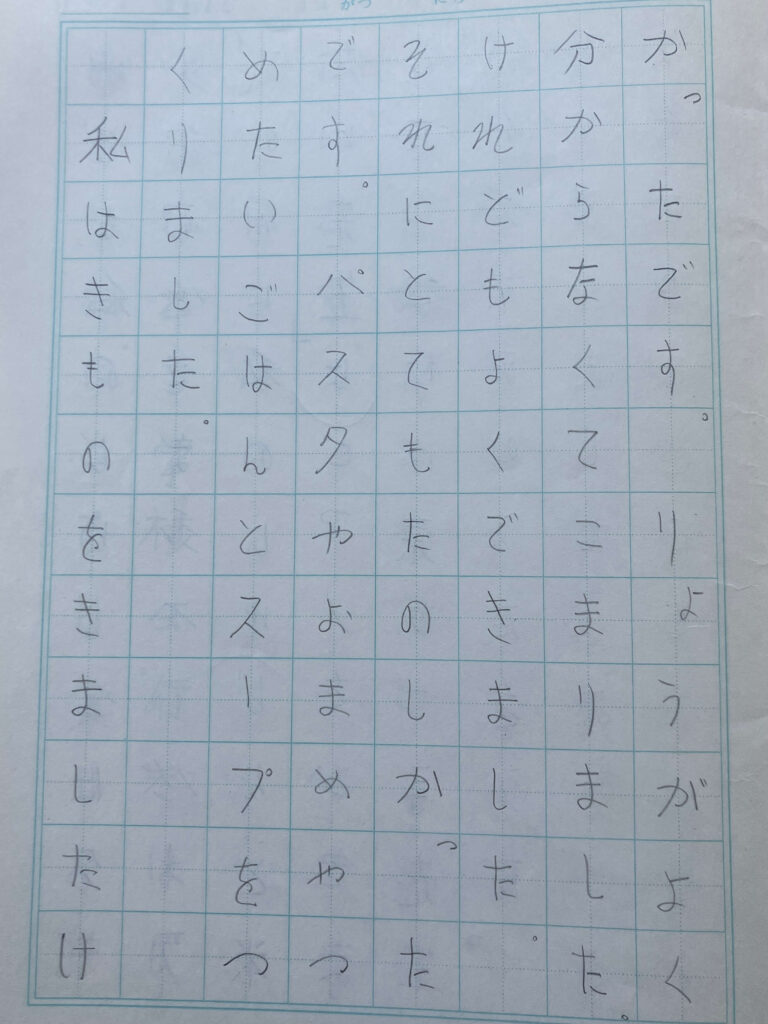 かったです。りょうがよく
分からなくてこまりました。
けれどもよくできました。
それにとてもたのしかった
です。パスタやおまめやつ
めたいごはんとスープをつ
くりました。
私はきものをきましたけ